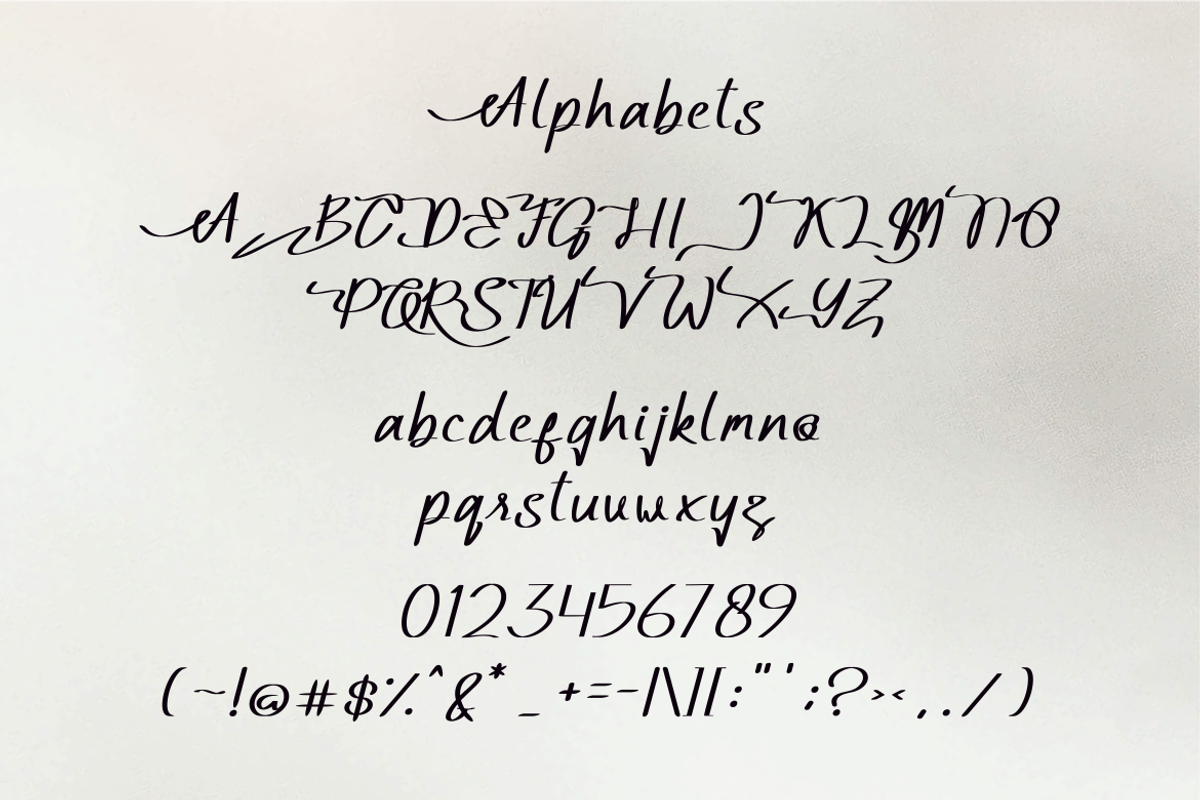 Alphabets
ABCDEFGHIJKLMNO
PQRSTUVWXYZ
abcdefghijklmno
pqrstuvwxyz
0123456789
(~!@#$%^&*_+=-|\][:"';?><,./)